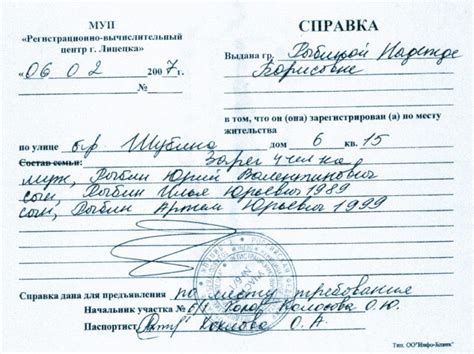 МУП
«Регистрационно-вычислительный
центр г. Липецка»
« 06 02 2007 г.
№
СПРАВКА
Выдана гр. Рыбиной Надежде
Борисовне
в том, что он (она) зарегистрирован (а) по месту
жительства
по улице б-р Шубина дом 6 кв. 15
Состав семьи: Зарег 4 человека
муж, Рыбин Юрий Валентинович
сын, Рыбин Илья Юрьевич 1989
сын, Рыбин Артем Юрьевич 1999
Справка дана для предъявления по месту требования
Начальник участка Колосова О.Ю.
Паспортист Хохлова О. А.
Тип. ОО"Инфо-Бланк"